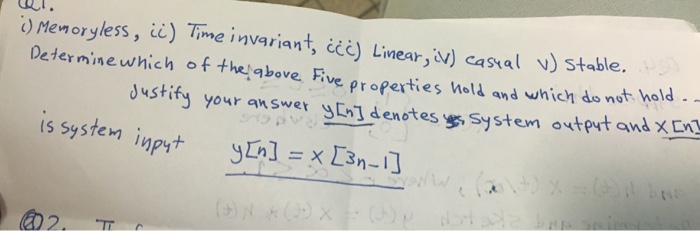 Q1.
i) Memoryless, ii) Time invariant, iii) Linear, iv) casual v) Stable.
Determine which of the above Five properties hold and which do not hold..
Justify your answer y[n] denotes system output and x[n]
is system input
y[n] = x [3n-1]
Q2.